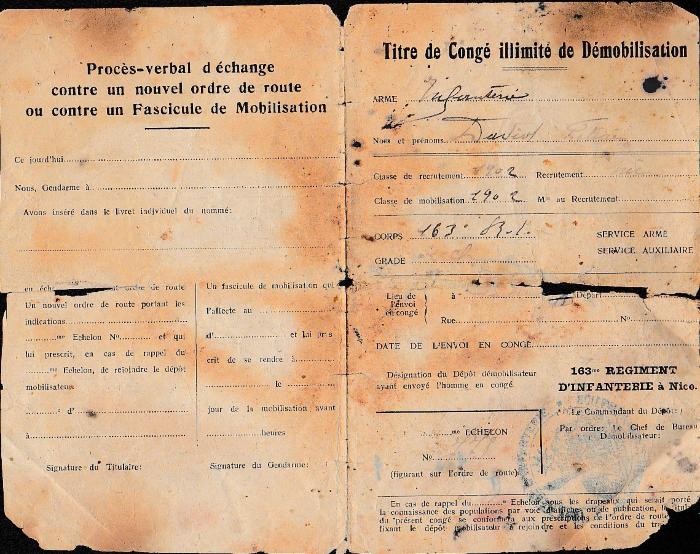 Procès-verbal d'échange
contre un nouvel ordre de route
ou contre un Fascicule de Mobilisation
Ce jourd'hui
Nous, Gendarme à
Avons inséré dans le livret individuel du nommé:
en éch ordre de route
Un nouvel ordre de route portant les
indications
me Echelon No et qui
lui prescrit, en cas de rappel du
me Echelon, de rejoindre le dépôt
mobilisateur
d'
à
Signature du Titulaire:
Un fascicule de mobilisation qui
l'affecte au
d' et lui pris
crit de se rendre à
le
jour de la mobilisation avant
heures
Signature du Gendarme:
Titre de Congé illimité de Démobilisation
ARME Infanterie
Noms et prénoms David
Classe de recrutement 1902 Recrutement
Classe de mobilisation 1902 Mle au Recrutement
CORPS 163e R.I. SERVICE ARMÉ
SERVICE AUXILIAIRE
GRADE
Lieu de l'envoi en congé à Départ
Rue No
DATE DE L'ENVOI EN CONGÉ
Désignation du Dépôt démobilisateur
ayant envoyé l'homme en congé.
163me REGIMENT
D'INFANTERIE à Nice.
Le Commandant du Dépôt:
Par ordre: Le Chef de Bureau
Démobilisateur:
me ECHELON
No
(figurant sur l'ordre de route)
En cas de rappel du e Echelon sous les drapeaux qui serait porté
la connaissance des populations par voie d'affiche ou de publication, le
du présent congé se conformera aux prescriptions de l'ordre de route
fixant le dépôt mobilisateur à rejoindre et les conditions du